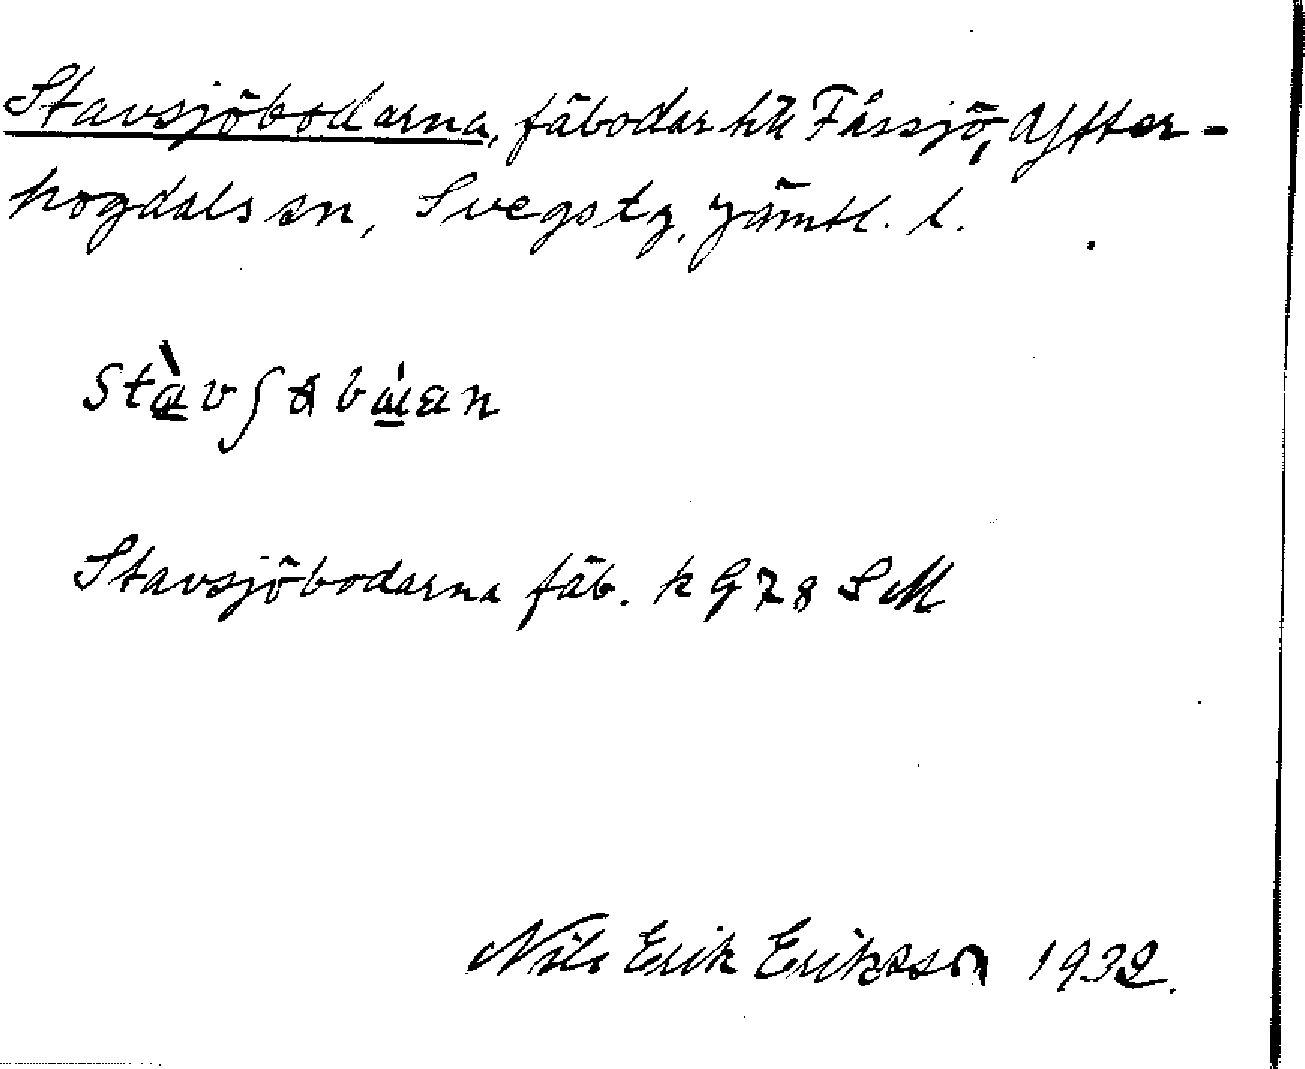 Stavsjöbodarna, fäbodar t. Fåssjö, Ytter-
hogdals sn, Svegs tg, Jämtl. l.
Stavsjöbodarna fäb. k G 78 SM
Nils Erik Eriksson 1932.